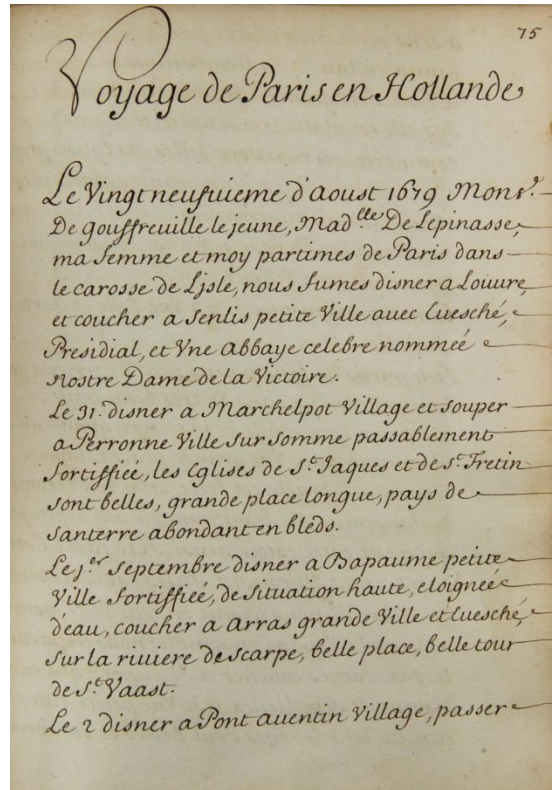 75
Voyage de Paris en Hollande
Le Vingt neufuieme d'Aoust 1679 Monsr.
De gouffreuille le jeune, Madlle De Lepinasse,
ma femme et moy partimes de Paris dans
le carosse de Ljsle, nous fumes disner a Louure,
et coucher a Senlis petite Ville auec Euesché,
Presidial, et Vne Abbaye celebre nommeé
Nostre Dame de la Victoire.
Le 31. disner a Marchelpot Village et souper
a Perronne Ville sur somme passablement
fortiffieé, les Eglises de St. Jaques et de St. Fretin
sont belles, grande place longue, pays de
Santerre abondant en bleds.
Le 1er. Septembre disner a Bapaume petite
Ville fortiffieé, de situation haute, eloigneé
d'eau, coucher a Arras grande Ville et Euesché,
sur la riuiere de scarpe, belle place, belle tour
de St. Vaast.
Le 2 disner a Pont auentin Village, passer